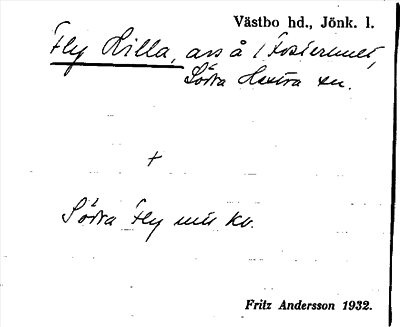 Västbo hd., Jönk. l.
Fly Lilla, avs å i Fostermult,
Södra Hestra sn.
+
Södra Fly mir kv.
Fritz Andersson 1932.